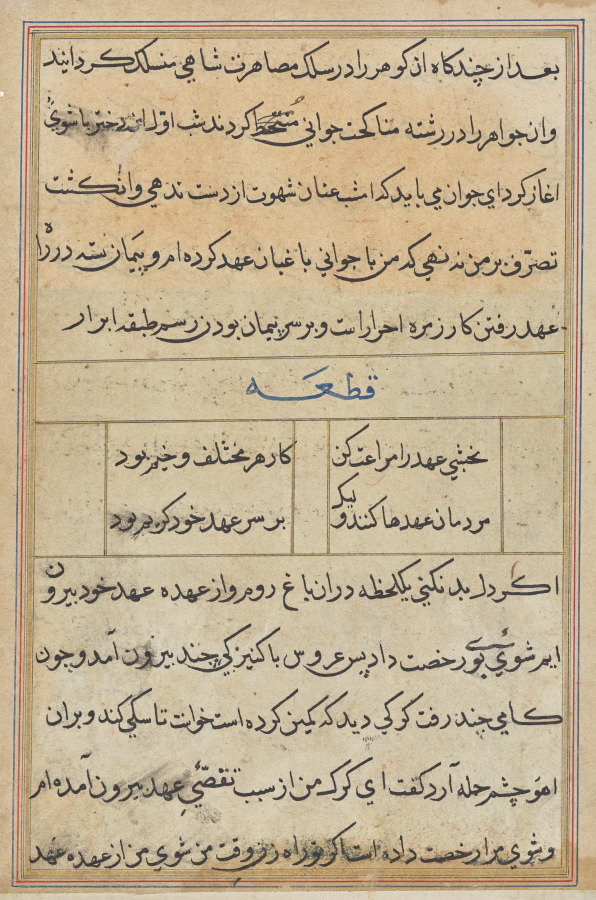 بعد از چندکاه ان کوهر را در سلک مصاهرت شاهی منسلک کردانیند
وان جواهر را در رشته مناکحت جوانی کردند شب اول این دختر با شوی
اغاز کرد ای جوان می باید که امشب عنان شهوت از دست ندهی وانکشت
تصرّف بر من ننهی که من با جوانی باغبان عهد کرده ام و پیمان بسته در راه
عهد رفتن کار زمره احرار است و بر سر پیمان بودن رسم طبقه ابرار
قطعه
نخشبی عهد را مراعت کن
کار هر مختلف وخیم بود
مردمان عهدها کنند ولیک
بر سر عهد خود کریم بود
اکر دل بد نکنی یکلحظه در ان باغ روم و از عهده عهد خود بیرون
ایم شوی رخصت داد پس عروس با کنیزکی چند بیرون آمد و چون
کامی چند رفت کرکی دید که کمین کرده است خواست تا سکی کند و بران
اهو چشم حمله آرد کفت ای کرک من از سبب تقصّی عهد بیرون آمده ام
و شوی مرا رخصت داده است اکر تو راه زنی وقت من شوی من از عهده عهد